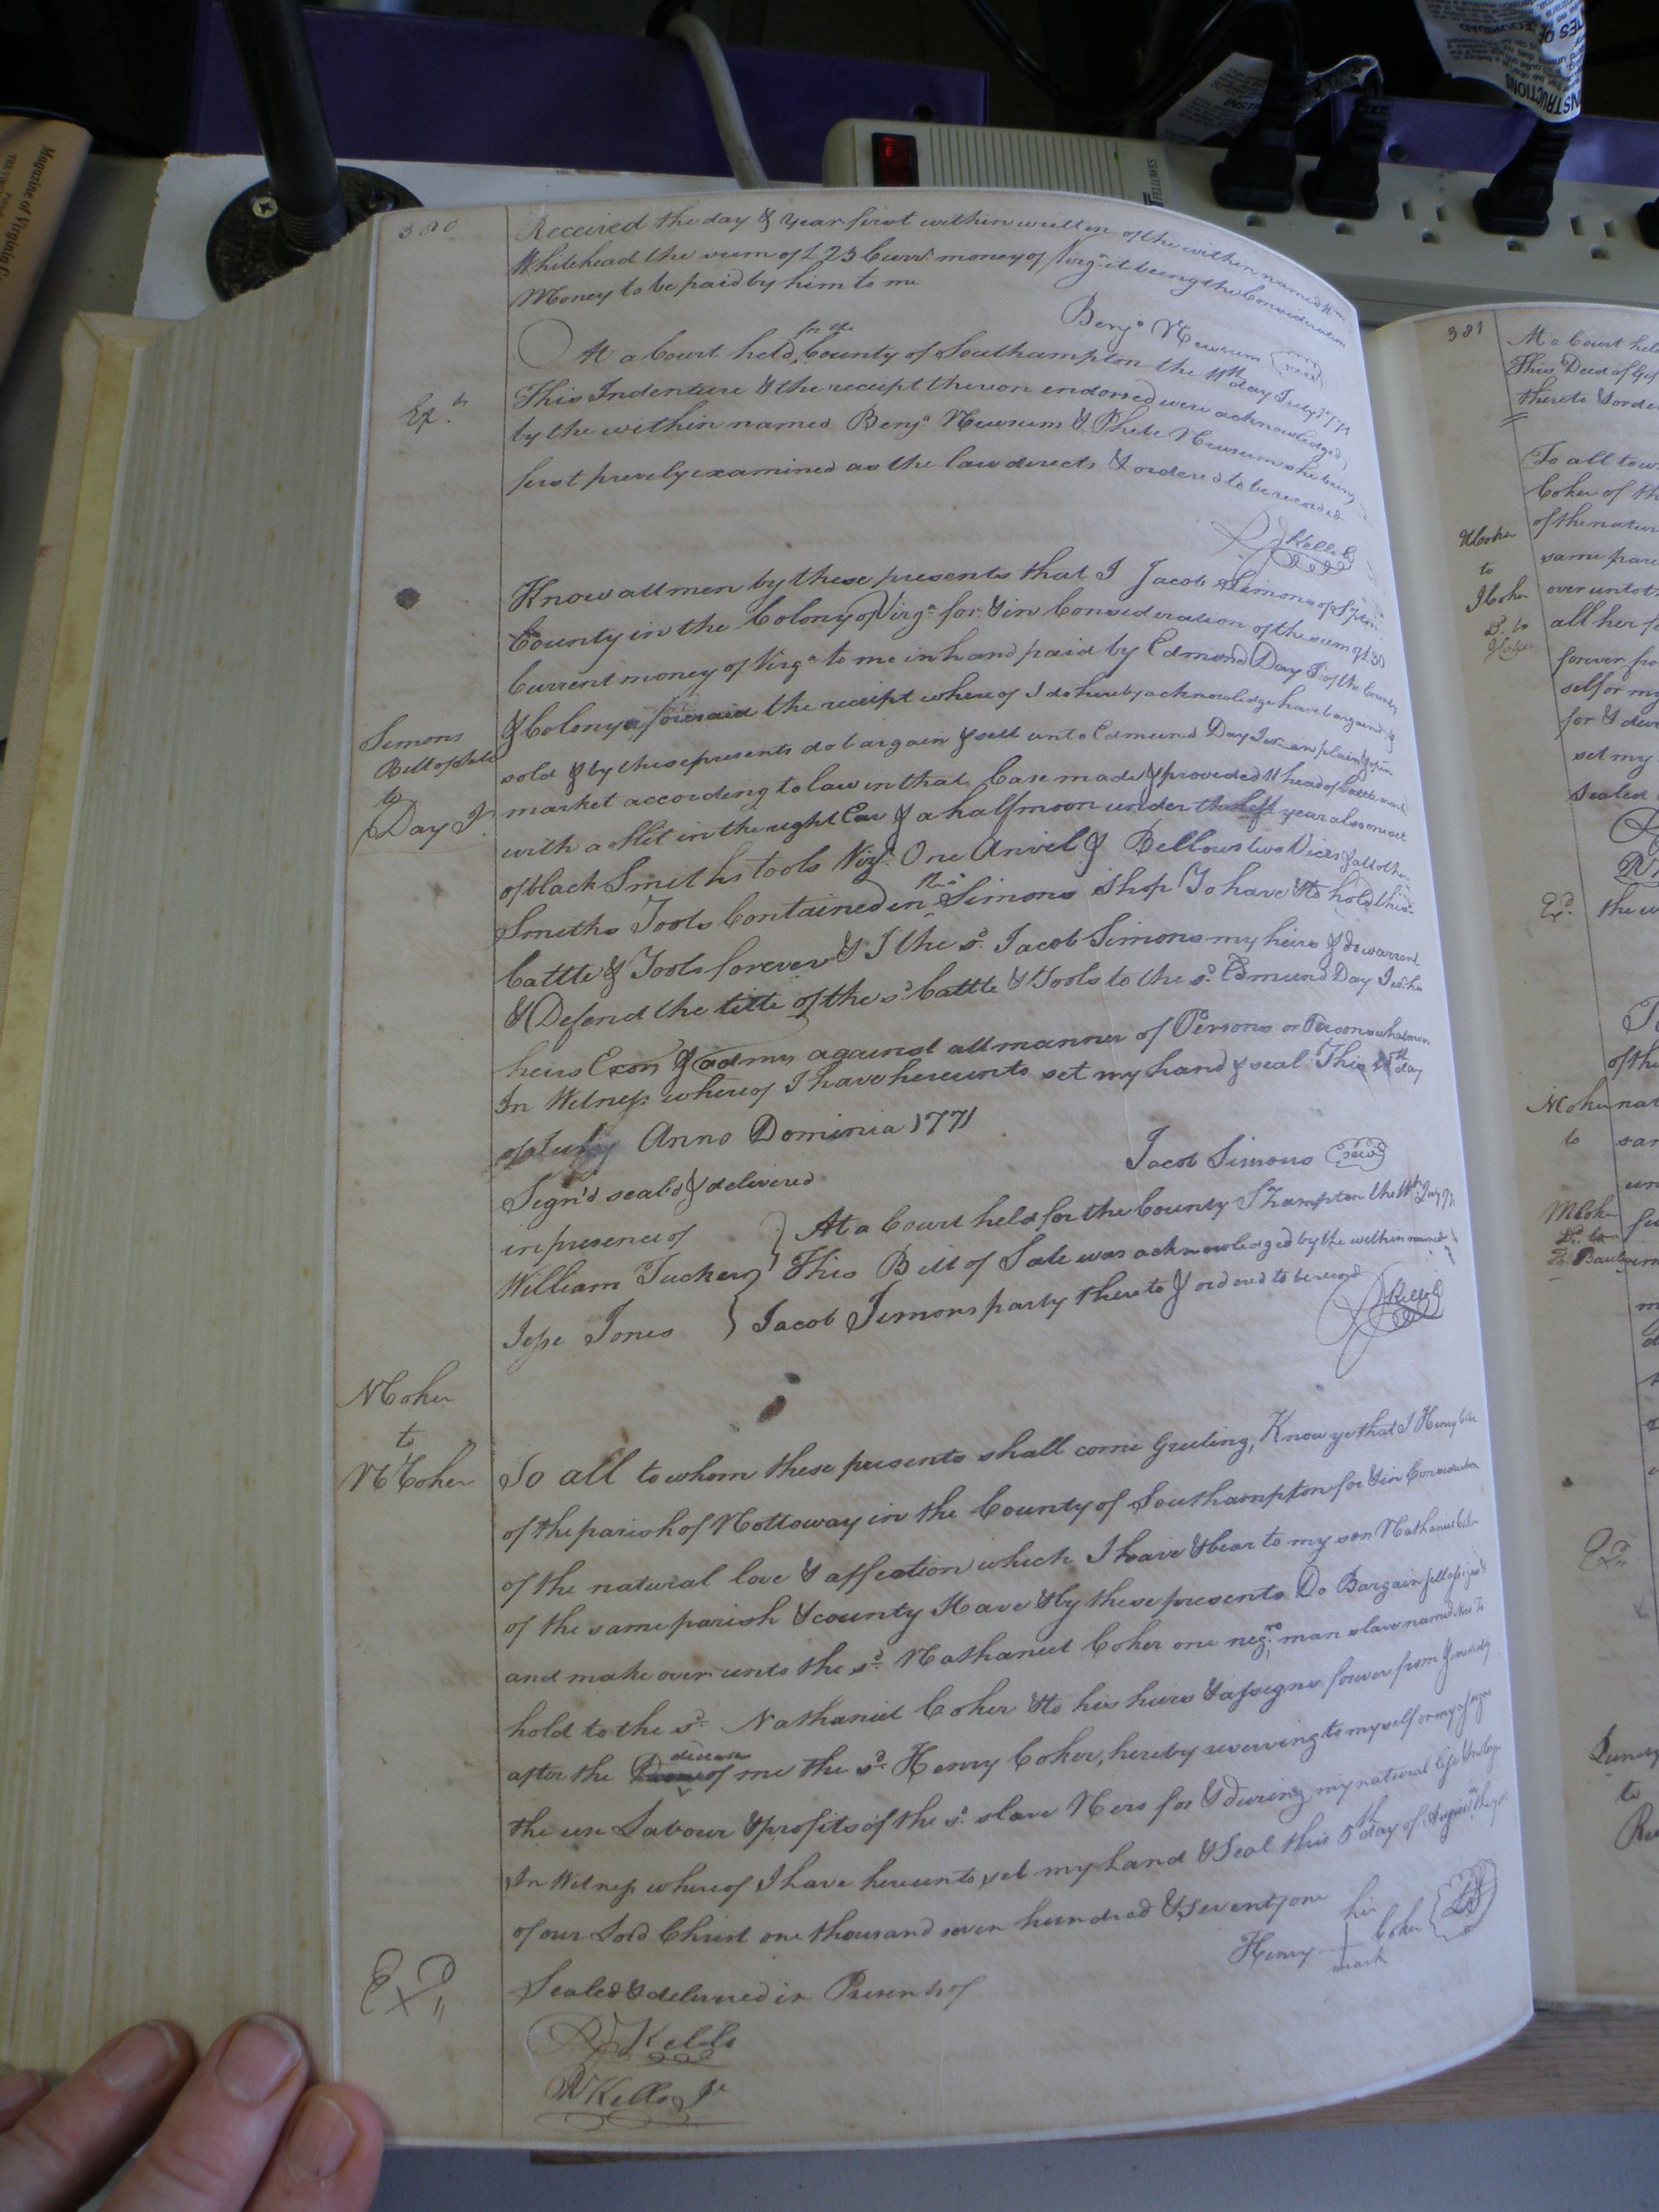 380
Received the day & year first within written of the within named Wm
Whitehead the sum of £23 Curr.t money of Virg.a it being the Consideration
Money to be paid by him to me
Benj.a Newsum (seal)
At a Court held for the County of Southampton the 11th day July 1771
Ex.d
This Indenture & the receipt thereon endorsed were acknowledged
by the within named Benj.a Newsum & Phebe Newsum she being
first prevely examined as the law directs & ordered to be recorded
R Kello C
Know all men by these presents that I Jacob Simons of
County in the Colony of Virg.a for & in Consideration of the sum of £30
Current money of Virg.a to me in hand paid by Edmond Day J.r of the County
& Colony aforesaid the receipt whereof I do hereby acknowledge have bargained &
Simons
Bill of Sale
to
Day J.r
sold & by these presents do bargain & sell unto Edmund Day Jur. in plain & open
market according to law in that Case made & provided 11 head of Cattle mark
with a Slit in the right Ear & a half moon under the left year also one set
of black Smiths tools Viz.t One Anvel & Bellows two Vices & all other
Smiths Tools Contained in the s.d Simons Shop To have & to hold this
Cattle & Tools forever & I the s.d Jacob Simons my heirs & do warrant
& Defend the title of the s.d Cattle & Tools to the s.d Edmund Day Jur. his
heirs Exors & admrs against all manner of Persons or Persons whatsoever
In Witness whereof I have hereunto set my hand & seal This day
of July Anno Dominia 1771
Jacob Simons (seal)
Sign'd seal'd & delivered
in presence of
William Tucker
Jesse Jones
At a Court held for the County S.hampton the 11th July 1771
This Bill of Sale was acknowledged by the within named
Jacob Simons party thereto & ordered to be record
R Kello C
H Coker
to
N Coker
To all to whom these presents shall come Greeting, Know ye that I Henry Coker
of the parish of Nottoway in the County of Southampton for & in Consideration
of the natural love & affection which I have & bear to my son Nathaniel Coker
of the same parish & county Have & by these presents Do Bargain sell assign &
and make over unto the s.d Nathaniel Coker one negro man slave named Nero To
hold to the s.d Nathaniel Coker & to his heirs & assigns forever from & imediately
after the decease of me the s.d Henry Coker, hereby reserving to myself or my assigns
the use Labour & profits of the s.d slave Nero for & during my natural life
In Witness whereof I have hereunto set my hand & Seal this 5th day of August in the year
of our Lord Christ one thousand seven hundred & seventy one
his
Henry Coker LS
mark
Ex.d
Sealed & delivered in Presents of
R Kello
R Kello Jr
381
At a Court held
This Deed of Gif
thereto & orde
To all to w
Coker of th
of the natur
H Coker
to
J Coker
D.o to
J Coker
same pari
over unto th
all her
forever fro
self or my
for & dur
set my
Sealed
Ex.d
the w
of the
to
nat
M Coker
D.o to
Ex.d
to
Magazine of Virginia
FELLOWES
INSTRUCTIONS